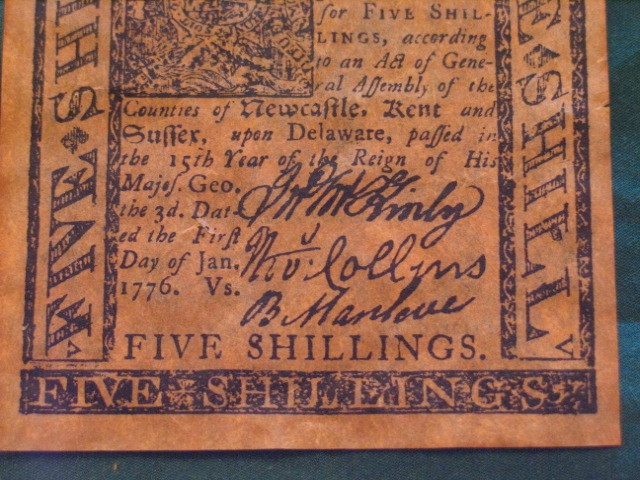 for FIVE SHIL-
LINGS, according
to an Act of Gene-
ral Aſſembly of the
Counties of Newcaſtle, Kent and
Suſſex, upon Delaware, paſſed in
the 15th Year of the Reign of His
Majeſ. Geo.
the 3d. Dat-
ed the Firſt
Day of Jan.
1776. Vs.
Jn McKinly
Collins
B. Manlove
FIVE SHILLINGS.
FIVE SHILLINGS
FIVE SHI
E SHILL